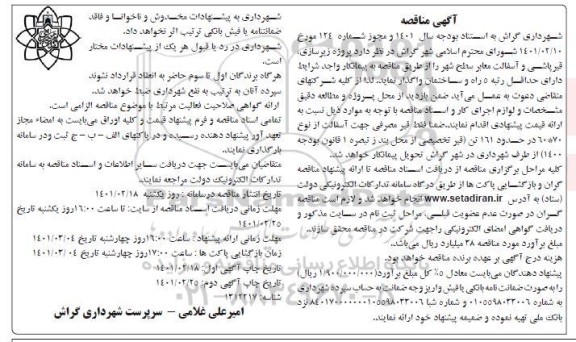 آگهی مناقصه
شهرداری گراش به استناد بودجه سال ۱۴۰۱ و مجوز شماره ۱۲۴ مورخ
۱۴۰۱/۰۲/۱۰ شورای محترم اسلامی شهر گراش در نظر دارد پروژه زیرسازی،
قیرپاشی و آسفالت معابر سطح شهر را از طریق مناقصه به پیمانکار واجد شرایط
دارای حداقل رتبه ۵ راه و ساختمان واگذار نماید. لذا از کلیه شرکتهای
متقاضی دعوت به عمل می‌آید ضمن بازدید از محل پروژه و مطالعه دقیق
مشخصات و لوازم اجرای کار و اسناد مناقصه با توجه به موارد ذیل نسبت به
ارائه قیمت پیشنهادی اقدام نمایند. ضمنا قیر مصرفی جهت آسفالت از نوع
۶۰*۷۰ در حدود ۱۶۱ تن (قیر تخصیصی از محل بند ز تبصره ۱ قانون بودجه
۱۴۰۰) از طرف شهرداری در شهر گراش تحویل پیمانکار خواهد شد.
کلیه مراحل برگزاری مناقصه از دریافت اسناد مناقصه تا ارائه پیشنهاد مناقصه
گران و بازگشایی پاکت ها از طریق درگاه سامانه تدارکات الکترونیکی دولت
(ستاد) به آدرس www.setadiran.ir انجام خواهد شد و لازم است مناقصه
گران در صورت عدم عضویت قبلی، مراحل ثبت نام در سایت مذکور و
دریافت گواهی امضای الکترونیکی را جهت شرکت در مناقصه محقق سازند.
مبلغ برآورد مورد مناقصه ۳۸ میلیارد ریال می‌باشد.
هزینه درج آگهی بر عهده برنده مناقصه خواهد بود.
پیشنهاد دهندگان می‌بایست معادل ۵٪ کل مبلغ برآورد (۱/۹۰۰/۰۰۰/۰۰۰ ریال)
را به صورت ضمانت نامه بانکی یا فیش واریز وجه ضمانت به حساب سپرده شهرداری
به شماره ۰۱۰۵۵۹۸۰۳۳۰۰۶ و شماره شبا نزد
بانک ملی تهیه نموده و ضمیمه پیشنهاد خود ارائه نمایند.
شهرداری به پیشنهادات مخدوش و ناخوانا و فاقد
ضمانتنامه یا فیش بانکی ترتیب اثر نخواهد داد.
شهرداری در رد یا قبول هر یک از پیشنهادات مختار
است.
هرگاه برندگان اول تا سوم حاضر به انعقاد قرارداد نشوند
سپرده آنان به ترتیب به نفع شهرداری ضبط خواهد شد.
ارائه گواهی صلاحیت فعالیت مرتبط با موضوع مناقصه الزامی است.
تمامی اسناد مناقصه و فرم پیشنهاد قیمت و کلیه اوراق می‌بایست به امضاء مجاز
تعهد آور پیشنهاد دهنده رسیده و در پاکتهای الف – ب – ج ثبت و در سامانه
بارگذاری نمایند.
متقاضیان می‌بایست جهت دریافت سایر اطلاعات و اسناد مناقصه به سامانه
تدارکات الکترونیک دولت مراجعه نمایند.
تاریخ انتشار مناقصه در سامانه : روز یکشنبه ۱۴۰۱/۰۲/۱۸
مهلت دریافت اسناد مناقصه از سایت: تا ساعت ۱۶:۰۰ روز یکشنبه تاریخ
۱۴۰۱/۰۲/۲۵
مهلت زمانی ارائه پیشنهاد: ساعت ۱۶:۰۰ روز چهارشنبه تاریخ ۱۴۰۱/۰۳/۰۴
زمان بازگشایی پاکت ها : ساعت ۱۷:۰۰ روز چهارشنبه تاریخ ۱۴۰۱/۰۳/۰۴
تاریخ چاپ آگهی اول: ۱۴۰۱/۰۲/۱۸
تاریخ چاپ آگهی دوم: ۱۴۰۱/۰۲/۲۵
شناسه: ۱۳۱۲۲۱۷
امیرعلی غلامی – سرپرست شهرداری گراش